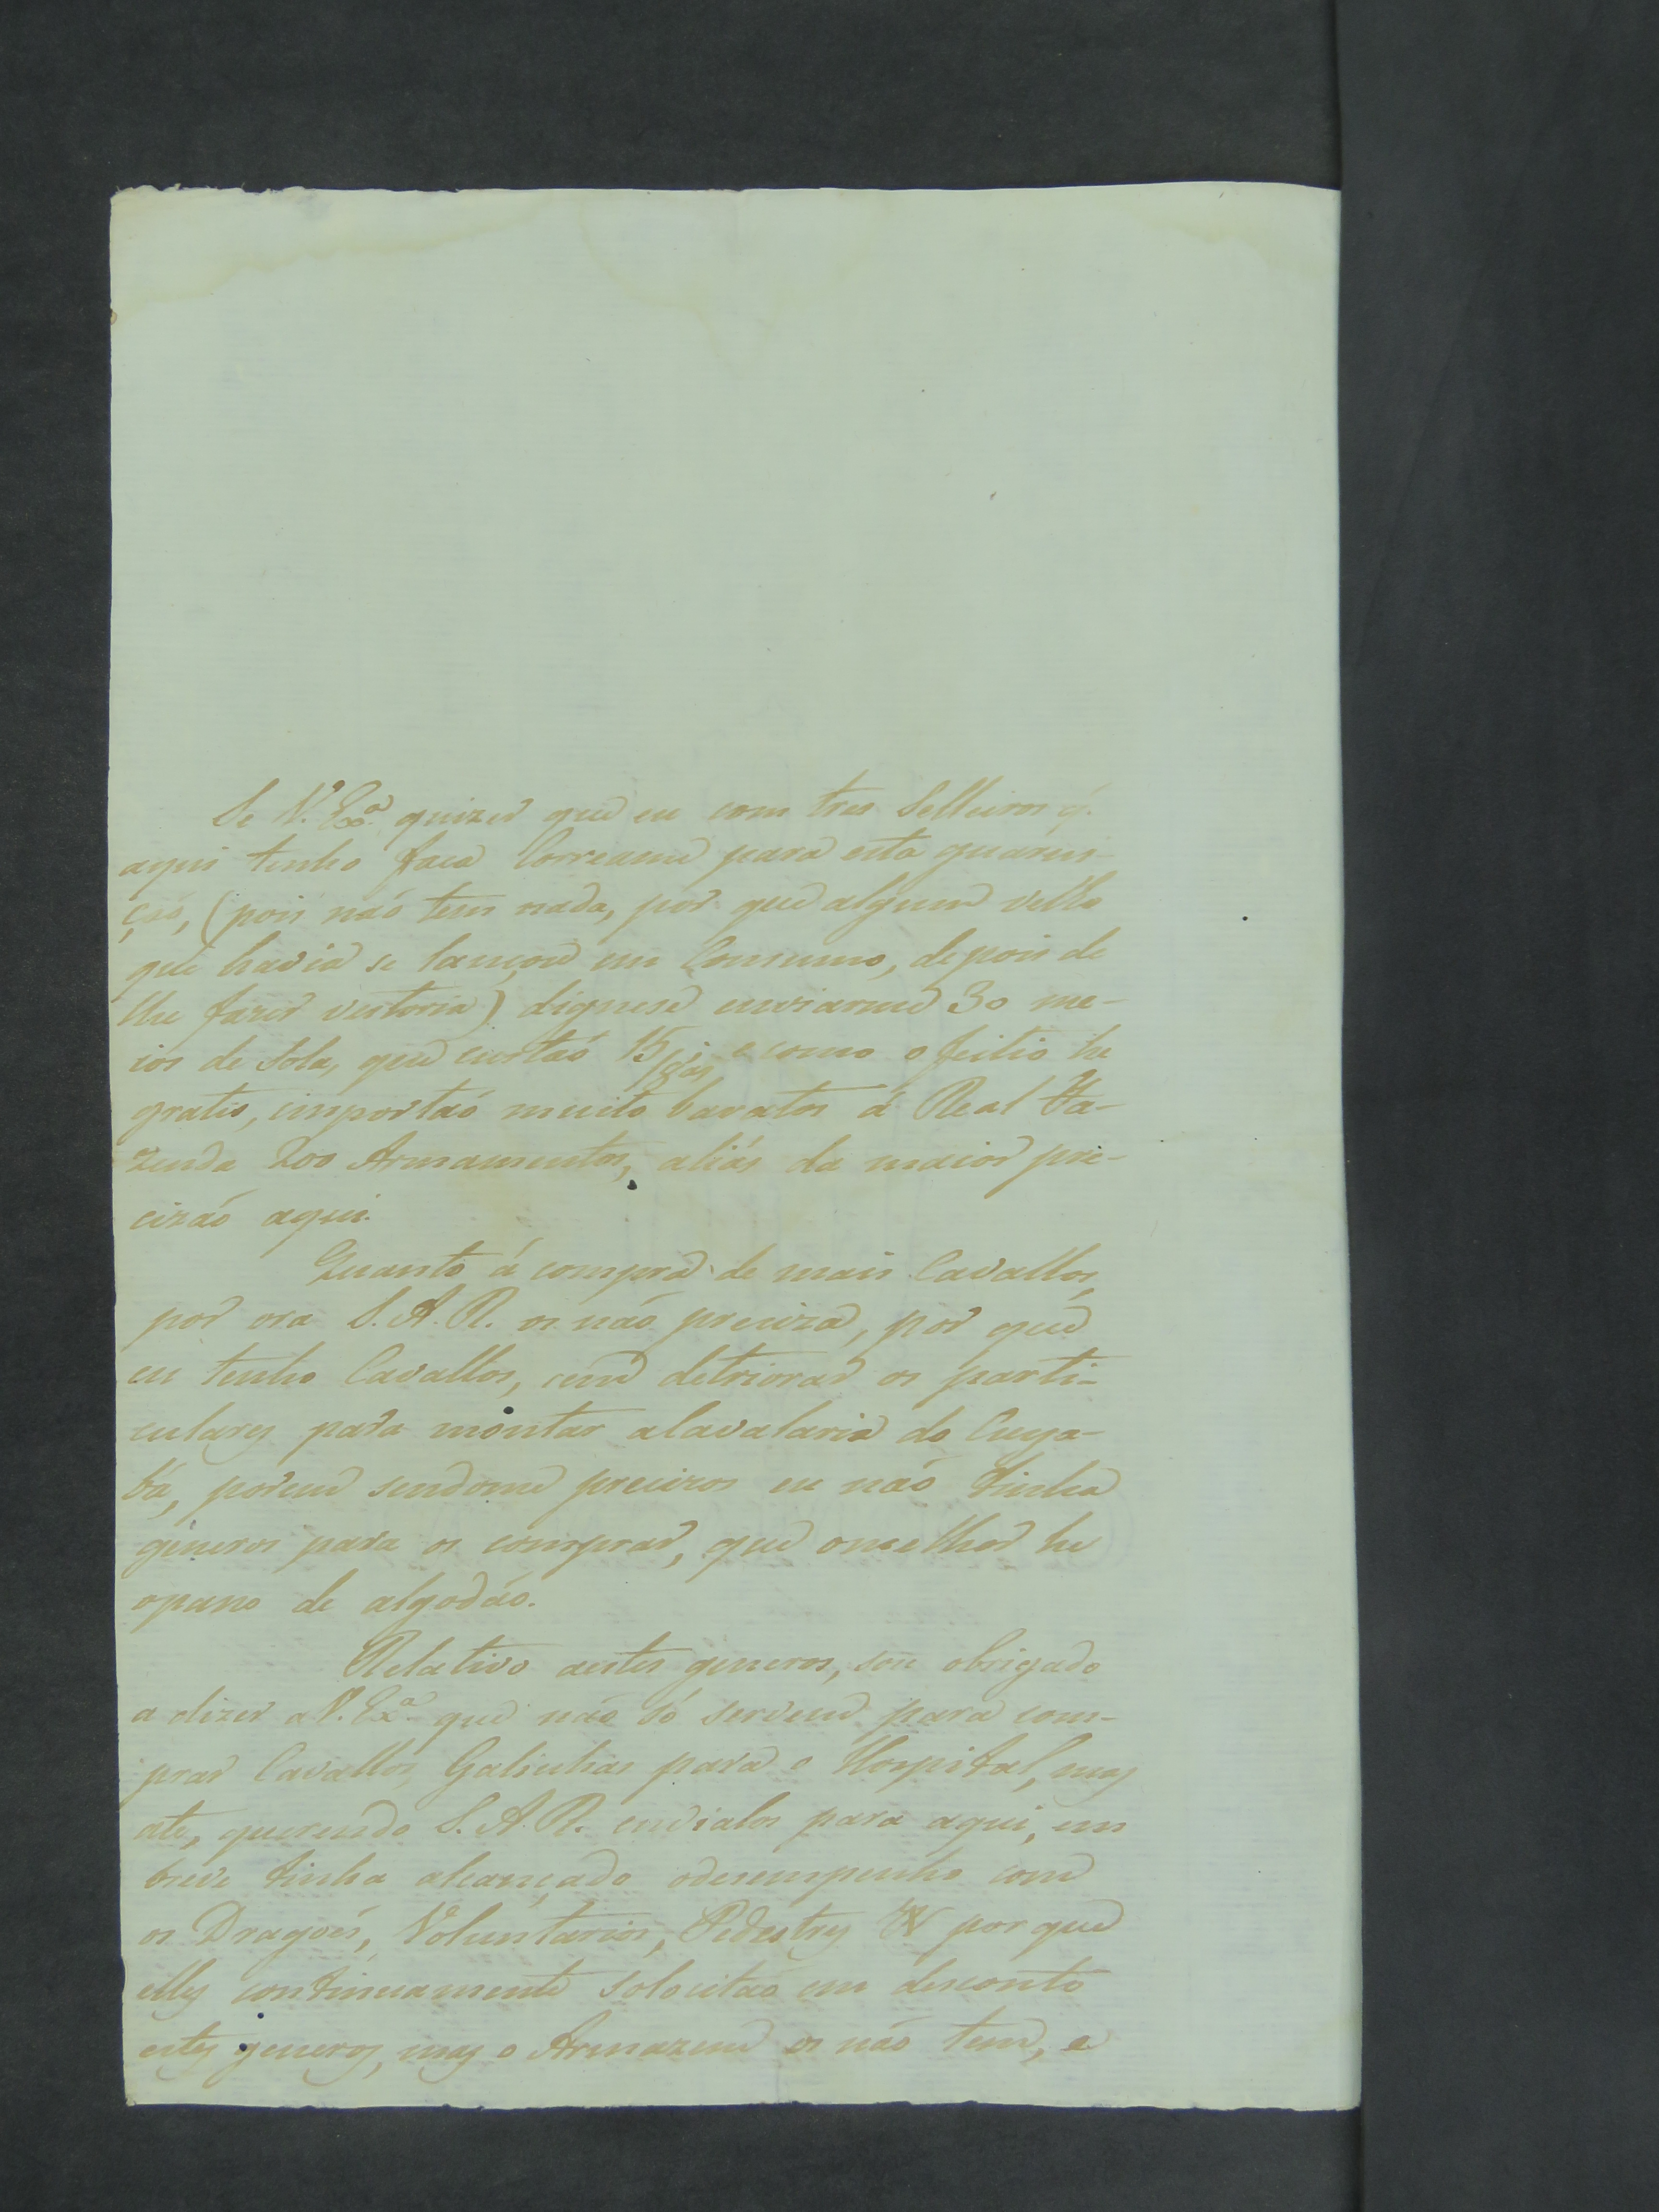 Se V. Exª quizer que eu com tres Selleiros q.
aqui tenho faça Correame para esta guarni-
çaõ, (pois naõ tem nada, por que algum velho
que havia se lançou em Consumo, depois de
lhe fazer vestoria) dignese enviarme 30 me-
ios de Sola, que custaõ 15/8as, e como o feitio he
gratis, importaõ muito baratos á Real Fa-
zenda 200 Armamentos, aliás da maior pre-
cizaõ aqui.
Quanto á compra de mais Cavallos,
por ora S. A. R. os naõ preciza, por que
eu tenho Cavallos, sem detriorar os parti-
culares para montar a Cavalaria do Cuya-
bá, porem sendome precizos eu naõ tinha
generos para os comprar, que o melhor he
o pano de algodaõ.
Relativo a estes generos, sou obrigado
a dizer a V. Exª que naõ só servem para com-
prar Cavallos, Galinhas para o Hospital, mas
ate, querendo S. A. R. enviálos para aqui, em
breve tinha alcançado o desempenho com
os Dragoẽs, Voluntarios, Pedestres &ª por que
elles continuamente solocitaõ em desconto
estes generos, mas o Armazem os naõ tem, e